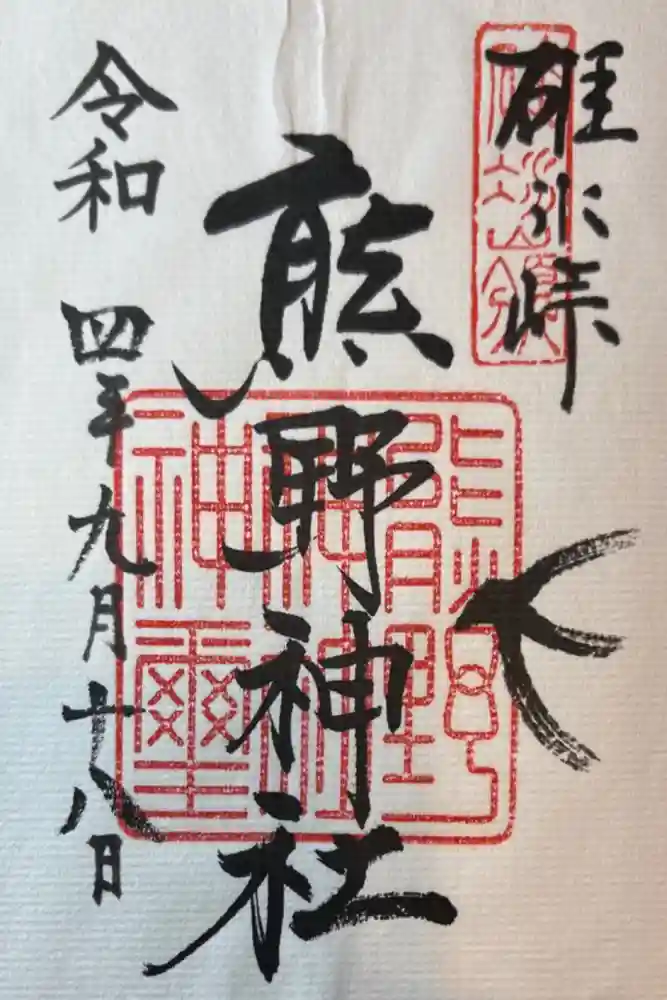 碓氷峠
熊野神社
熊野神社神璽
令和四年九月十八日